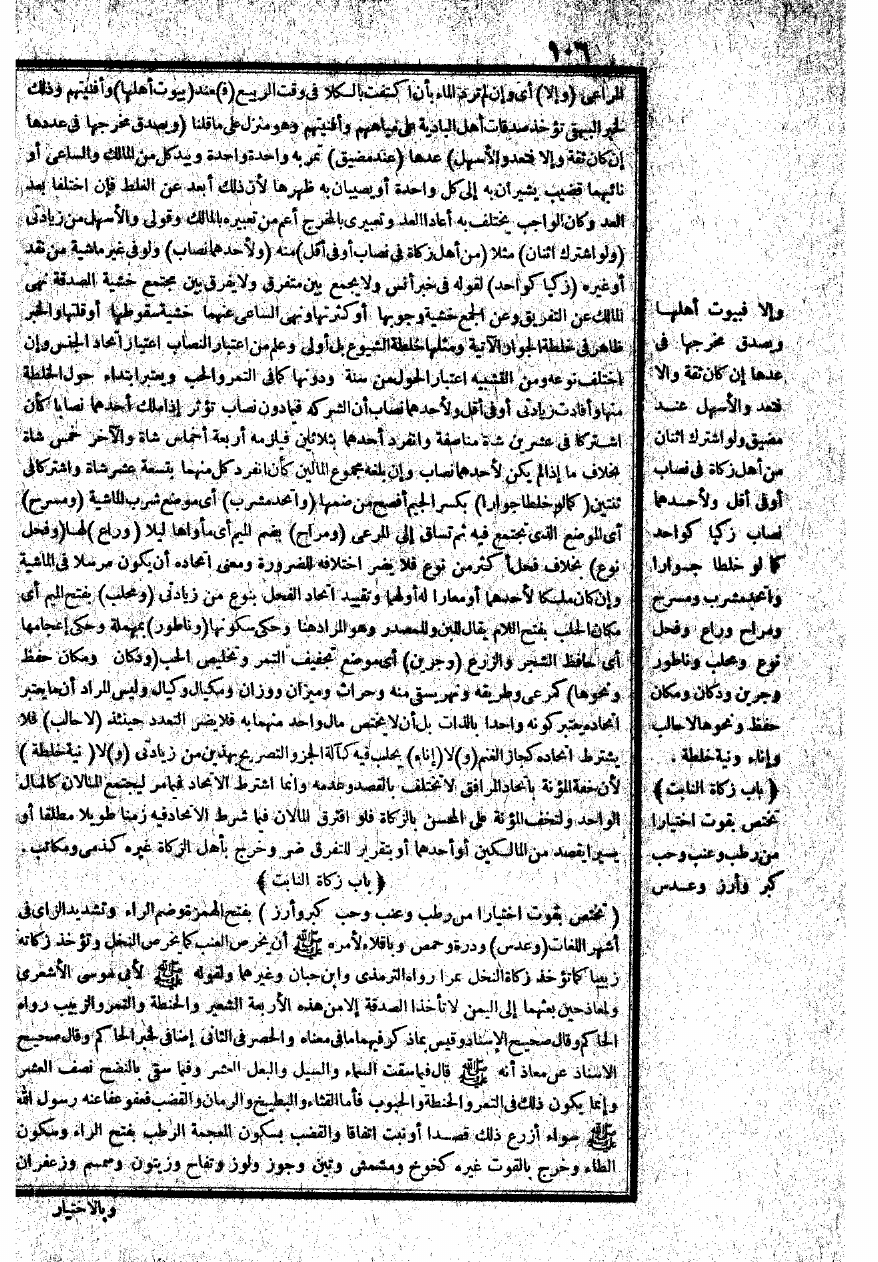 ١٠٦
المراعى (وإلا) أى وإن لم ترد الماء بأن اكتفت بالكلا فى وقت الربيع (ف) عند (بيوت أهلها) وأفنيتهم وذلك
لخبر البيهقى تؤخذ صدقات أهل البادية على مياههم وأفنيتهم وهو منزل على ما قلنا (ويصدق مخرجها فى عددها
إن كان ثقة وإلا فتعد والأسهل) عدها (عند مضيق) تمر به واحدة واحدة وبيد كل من المالك والساعى أو
نائبهما قضيب يشيران به إلى كل واحدة أو يصيبان به ظهرها لأن ذلك أبعد عن الغلط فإن اختلفا بعد
العد وكان الواجب يختلف به أعادا العد وتعبيرى بالمخرج أعم من تعبيره بالمالك وقولى والأسهل من زيادتى
(ولو اشترك اثنان) مثلا (من أهل زكاة فى نصاب أو فى أقل) منه (ولأحدهما نصاب) ولو فى غير ماشية من نقد
أو غيره (زكيا كواحد) لقوله فى خبر أنس ولا يجمع بين متفرق ولا يفرق بين مجتمع خشية الصدقة نهى
المالك عن التفريق وعن الجمع خشية وجوبها أو كثرتها ونهى الساعى عنهما خشية سقوطها أو قلتها والخبر
ظاهر فى خلطة الجوار الآتية ومثلها خلطة الشيوع بل أولى وعلم من اعتبار النصاب اعتبار اتحاد الجنس وإن
اختلف نوعه ومن التشبيه اعتبار الحول من سنة ودونها كما فى التمر والحب ويعتبر ابتداء حول الخلطة
منها وأفادت زيادتى أو فى أقل ولأحدهما نصاب أن الشركة فيما دون نصاب تؤثر إذا ملك أحدهما نصابا كأن
اشتركا فى عشرين شاة مناصفة وانفرد أحدهما بثلاثين فيلزمه أربعة أخماس شاة والآخر خمس شاة
بخلاف ما إذا لم يكن لأحدهما نصاب وإن بلغه مجموع المالين كأن انفرد كل منهما بتسعة عشر شاة واشتركا فى
ثنتين (كما لو خلطا جوارا) بكسر الجيم أفصح من ضمها (واتحد مشرب) أى موضع شرب الماشية (ومسرح)
أى الموضع الذى تجتمع فيه ثم تساق إلى المرعى (ومراح) بضم الميم أى مأواها ليلا (وراع) لها (وفحل
نوع) بخلاف فحل أكثر من نوع فلا يضر اختلافه للضرورة ومعنى اتحاده أن يكون مرسلا فى الماشية
وإن كان ملكا لأحدهما أو معارا له أو لهما وتقييد اتحاد الفحل بنوع من زيادتى (ومحلب) بفتح الميم أى
مكان الحلب بفتح اللام يقال للبن وللمصدر وهو المراد هنا وحكى سكونها (وناطور) بمهملة وحكى إعجامها
أى حافظ الشجر والزرع (وجرين) أى موضع تجفيف التمر وتخليص الحب (ودكان ومكان حفظ
ونحوها) كمرعى وطريقه ونهر يستقى منه وحراث وميزان ووزان ومكيال وكيال وليس المراد أن ما يعتبر
اتحاده يعتبر كونه واحدا بالذات بل أن لا يختص مال واحد منهما به فلا يضر التعدد حينئذ (لا حالب) فلا
يشترط اتحاده كجاز الغنم (و) لا (إناء) يحلب فيه كآلة الجز والتصريح بهذين من زيادتى (و) لا (نية خلطة)
لأن خفة المؤنة باتحاد المرافق لا تختلف بالقصد وعدمه وإنما اشترط الاتحاد فيما مر ليجتمع المالان كالمال
الواحد ولتخف المؤنة على المحسن بالزكاة فلو افترق المالان فيما شرط الاتحاد فيه زمنا طويلا مطلقا أو
يسيرا بقصد من المالكين أو أحدهما أو بتقرير للتفرق ضر وخرج بأهل الزكاة غيره كذمى ومكاتب .
﴿ باب زكاة النابت ﴾
( تختص بقوت اختيارا من رطب وعنب وحب كبر وأرز ) بفتح الهمزة وضم الراء وتشديد الزاى فى
أشهر اللغات (وعدس) وذرة وحمص وباقلاء لأمره ﷺ أن يخرص العنب كما يخرص النخل وتؤخذ زكاته
زبيبا كما تؤخذ زكاة النخل تمرا رواه الترمذى وابن حبان وغيرهما ولقوله ﷺ لأبى موسى الأشعرى
ولمعاذ حين بعثهما إلى اليمن لا تأخذا الصدقة إلا من هذه الأربعة الشعير والحنطة والتمر والزبيب رواه
الحاكم وقال صحيح الإسناد وقيس بما ذكر فيهما ما فى معناه والحصر فى الثانى إضافى لخبر الحاكم وقال صحيح
الاسناد عن معاذ أنه ﷺ قال فيما سقت السماء والسيل والبعل العشر وفيما سقى بالنضح نصف العشر
وإنما يكون ذلك فى التمر والحنطة والحبوب فأما القثاء والبطيخ والرمان والقضب فعفو عفا عنه رسول الله
ﷺ سواء أزرع ذلك قصدا أو نبت اتفاقا والقضب بسكون المعجمة الرطب بفتح الراء وسكون
الطاء وخرج بالقوت غيره كخوخ ومشمش وتين وجوز ولوز وتفاح وزيتون وسمسم وزعفران
وبالاختيار
وإلا فبيوت أهلها
ويصدق مخرجها فى
عدها إن كان ثقة والا
فتعد والأسهل عند
مضيق ولو اشترك اثنان
من أهل زكاة فى نصاب
أو فى أقل ولأحدهما
نصاب زكيا كواحد
كما لو خلطا جوارا
واتحد مشرب ومسرح
ومراح وراع وفحل
نوع ومحلب وناطور
وجرين ودكان ومكان
حفظ ونحوها لا حالب
وإناء ونية خلطة .
﴿ باب زكاة النابت ﴾
تختص بقوت اختيارا
من رطب وعنب وحب
كبر وأرز وعدس